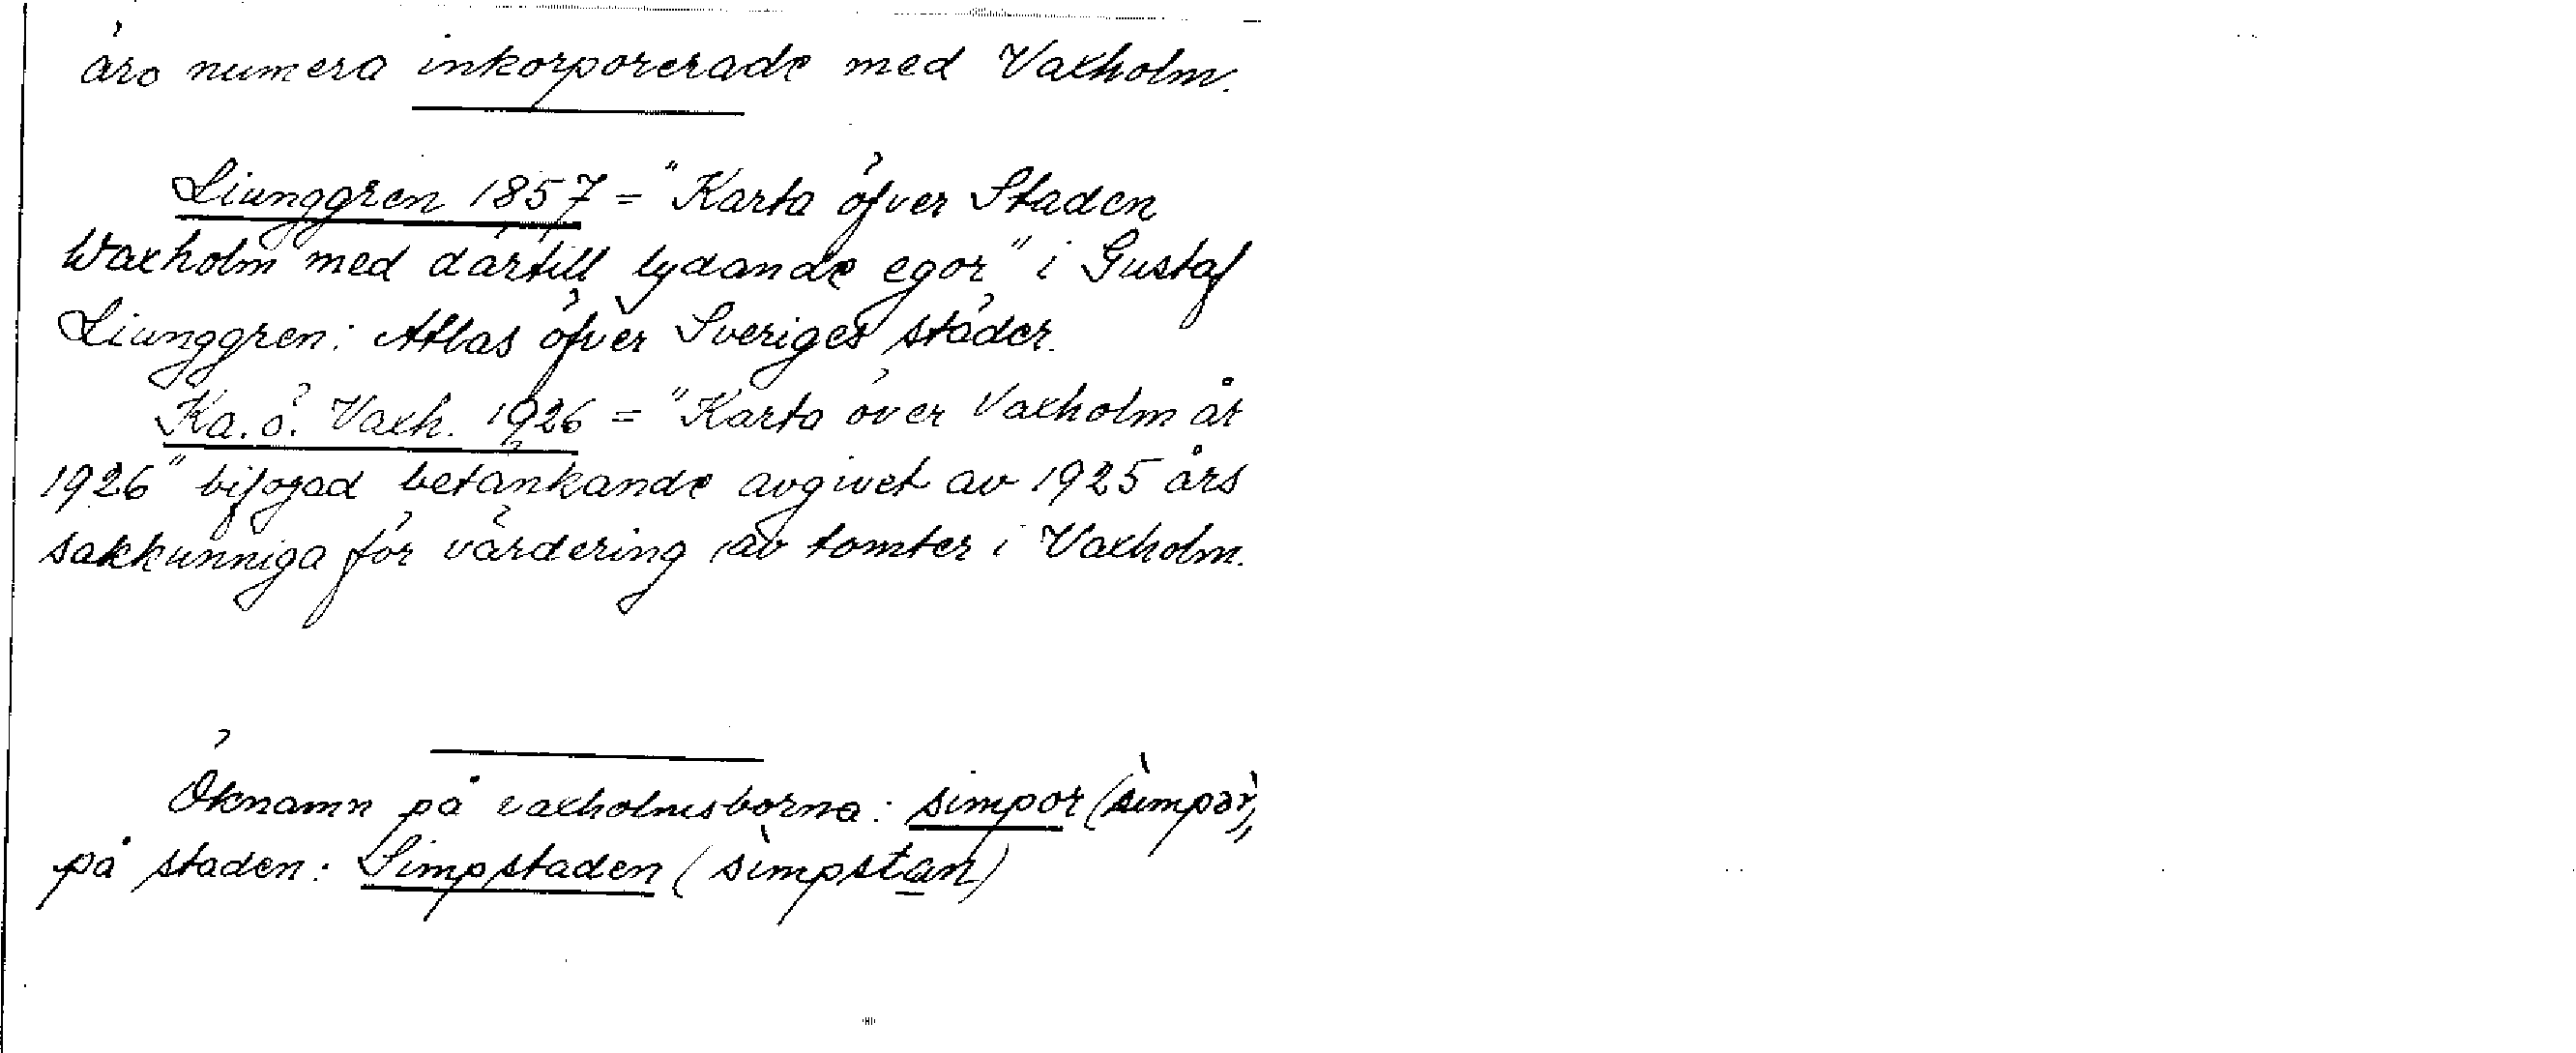 äro numera inkorporerade med Vaxholm.
Liunggren 1857 = "Karta öfver Staden
Waxholm med därtill lydande egor" i Gustaf
Liunggren: Atlas öfver Sveriges städer.
Ka. ö. Vaxh. 1926 = "Karta över Vaxholm år
1926" bifogad betänkande avgivet av 1925 års
sakkunniga för värdering av tomter i Vaxholm.
Öknamn på vaxholmsborna: simpor (sìmpàr),
på staden: Simpstaden (sìmpstan)